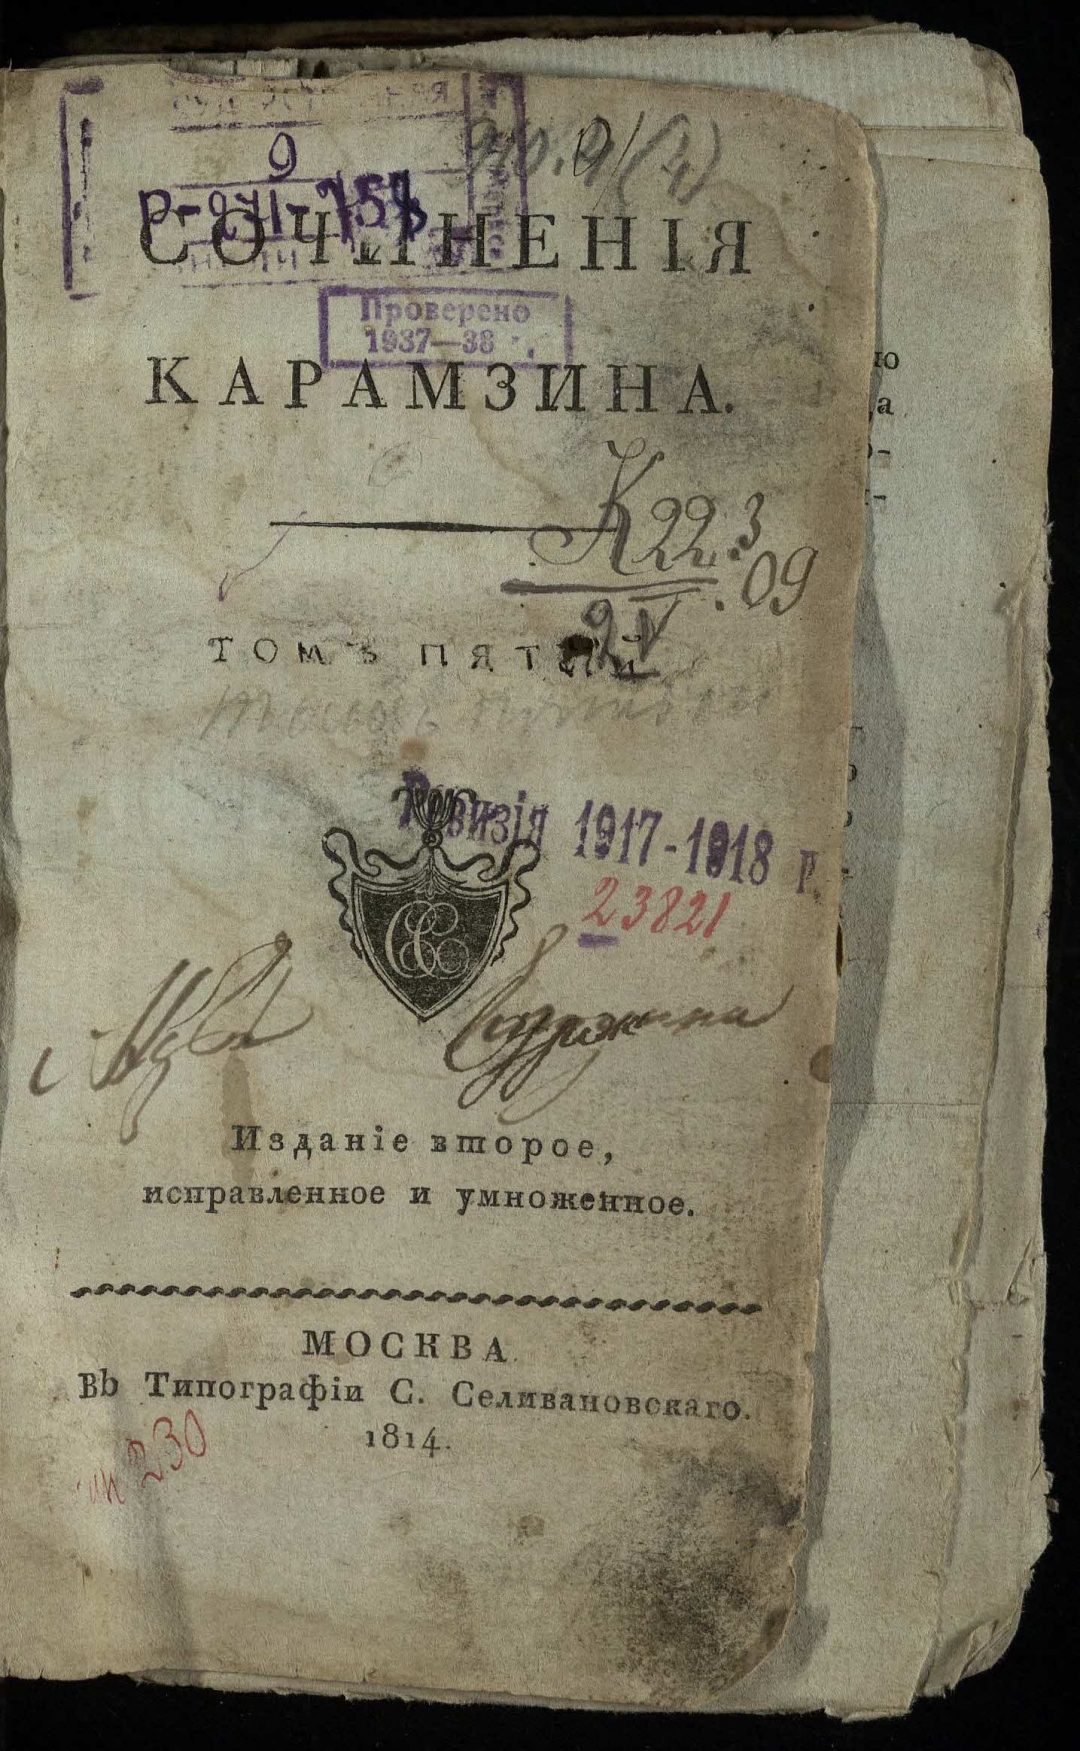 9
СОЧИНЕНІЯ
Проверено
1937—38
КАРАМЗИНА.
К22.3
.09
2V
ТОМЪ ПЯТЫЙ
Ревизія 1917-1918 г.
23821
Изданіе второе,
исправленное и умноженное.
МОСКВА.
Вb Типографіи С. Селивановскаго.
1814.
230